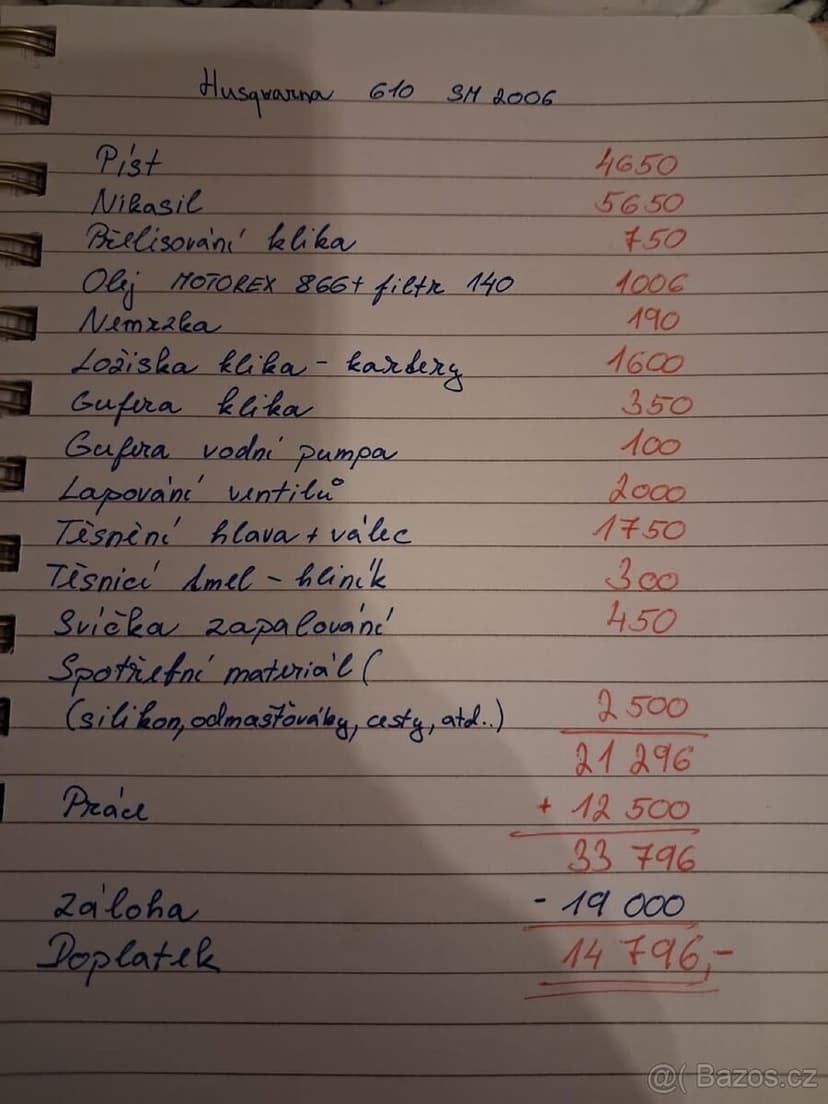 Husqvarna 610 SM 2006
Píst 4650
Nikasil 5650
Přelisování klika 750
Olej MOTOREX 866+ filtr 140 1006
Nemrzka 190
Ložiska klika - kartery 1600
Gufera klika 350
Gufera vodní pumpa 100
Lapování ventilů 2000
Těsnění hlava + válec 1750
Těsnicí tmel - hliník 300
Svíčka zapalování 450
Spotřební materiál (
(silikon, odmašťováky, cesty, atd..) 2 500
21 296
Práce + 12 500
33 796
Záloha - 19 000
Doplatek 14 796,-
@( Bazos.cz